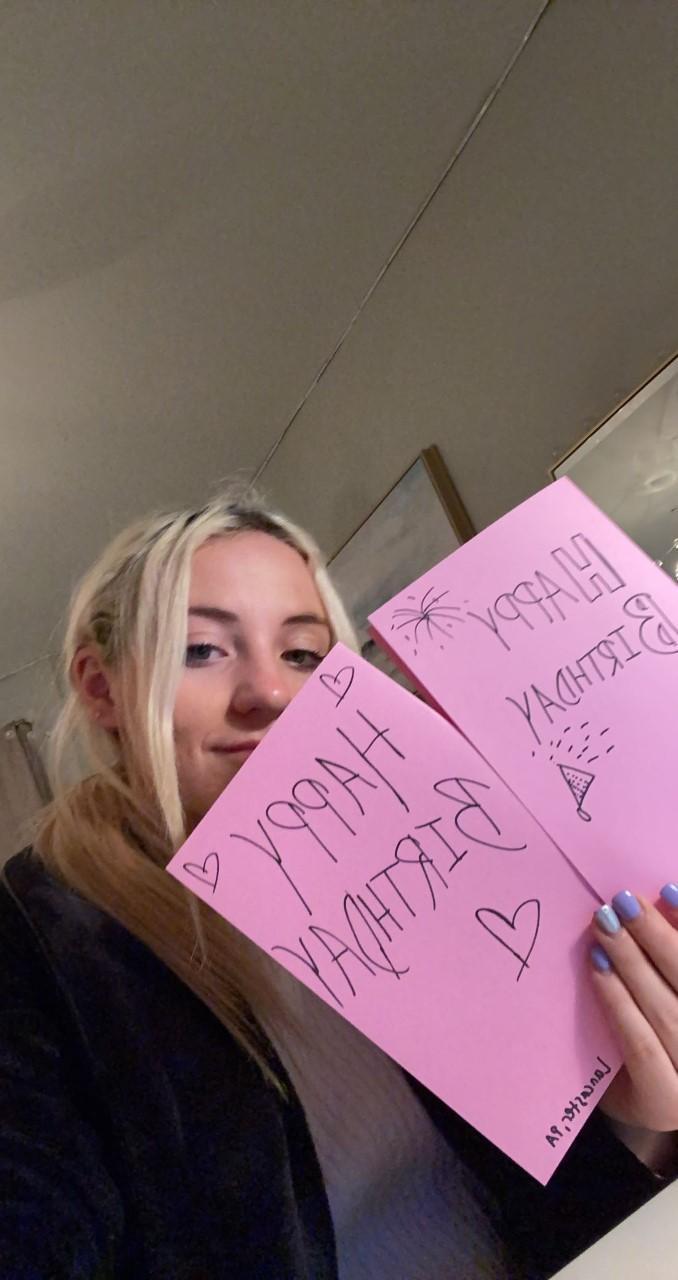 HAPPY
BIRTHDAY
Lancaster, PA
HAPPY
BIRTHDAY